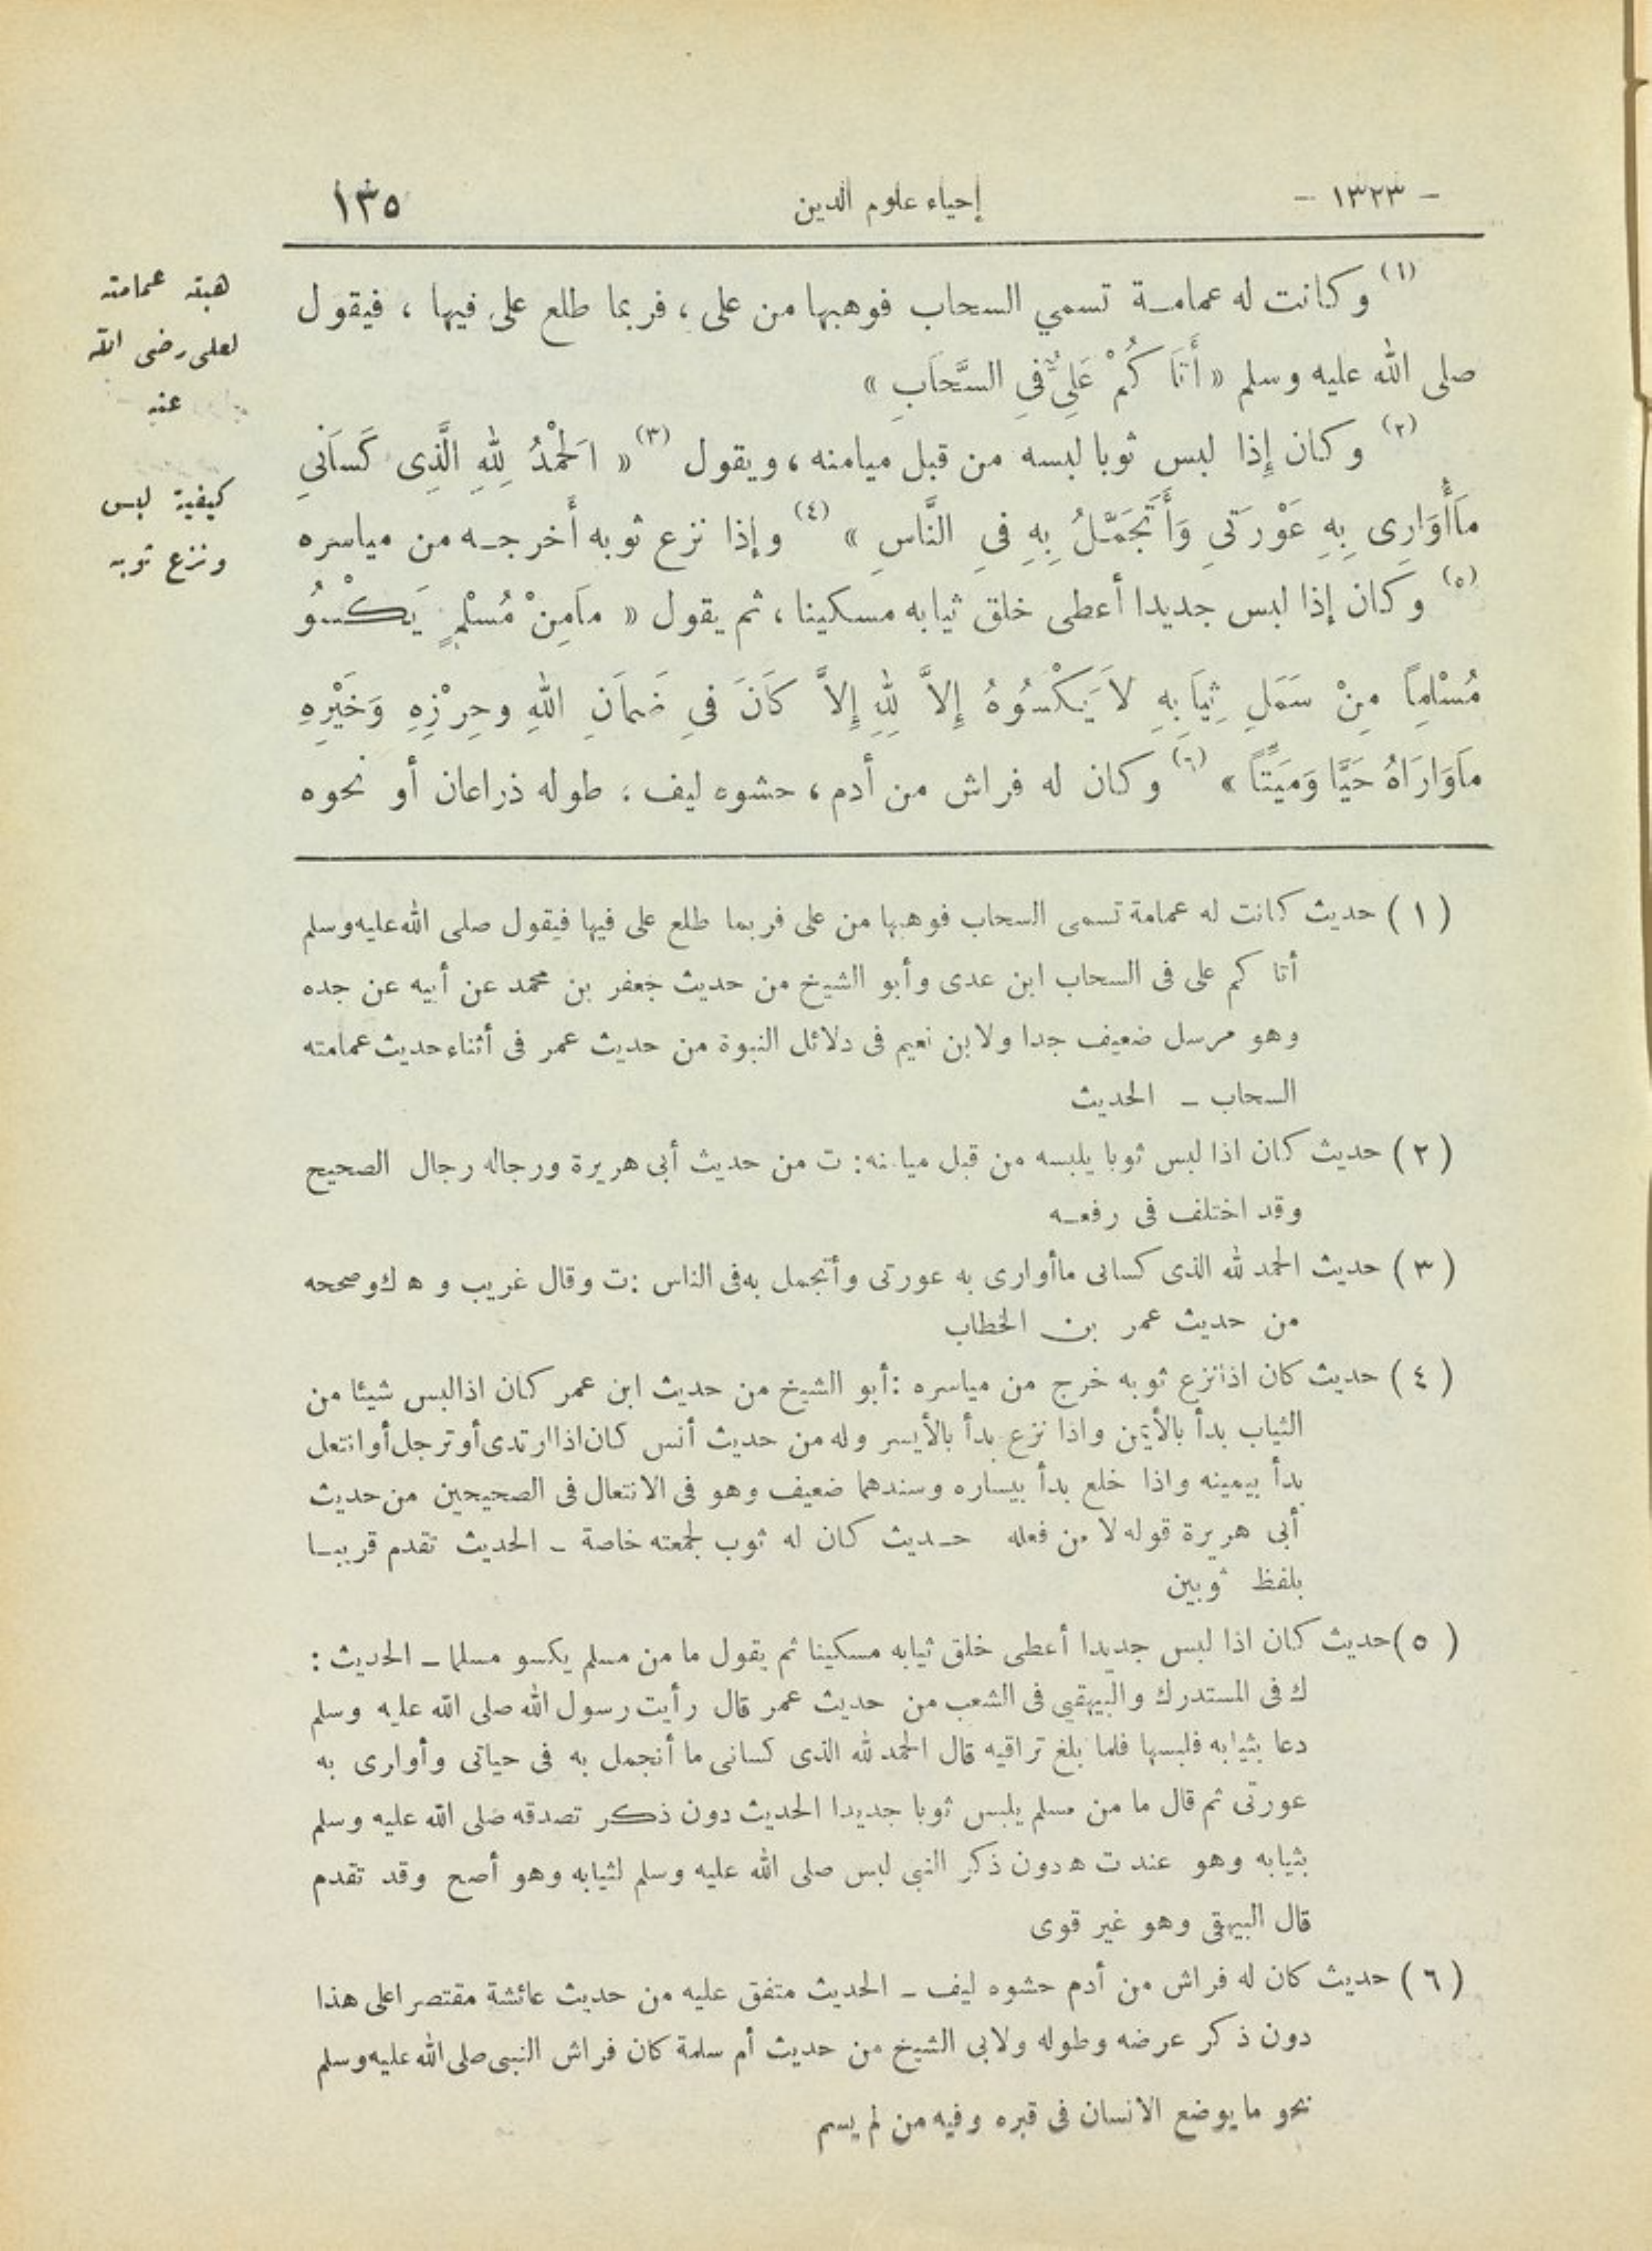 - ١٣٢٣ -
إحياء علوم الدين
١٣٥
(١) وكانت له عمامة تسمي السحاب فوهبها من على ، فربما طلع على فيها ، فيقول
صلى الله عليه وسلم « أَتَا كُمْ عَلِىٌّ فِى السَّحَابِ »
(٢) وكان إِذا لبس ثوبا لبسه من قبل ميامنه ، ويقول (٣) « اَلْحَمْدُ لِلهِ الَّذِى كَسَانِى
مَاأُوَارِى بِهِ عَوْرَتِى وَأَتَجَمَّلُ بِهِ فِى النَّاسِ » (٤) وإذا نزع ثوبه أَخرجه من مياسره
(٥) وكان إذا لبس جديدا أعطى خلق ثيابه مسكينا ، ثم يقول « مَامِنْ مُسْلِمٍ يَكْسُو
مُسْلِماً مِنْ سَمَلِ ثِيَابِهِ لاَ يَكْسُوهُ إِلاَّ لِلهِ إِلاَّ كَانَ فِى ضَمَانِ اللهِ وحِرْزِهِ وَخَيْرِهِ
مَاوَارَاهُ حَيًّا وَمَيِّتًا » (٦) وكان له فراش من أدم ، حشوه ليف ، طوله ذراعان أو نحوه
هبته عمامته
لعلى رضى الله
عنه
كيفية لبس
ونزع ثوبه
( ١ ) حديث كانت له عمامة تسمى السحاب فوهبها من على فربما طلع على فيها فيقول صلى الله عليه وسلم
أتا كم على فى السحاب ابن عدى وأبو الشيخ من حديث جعفر بن محمد عن أبيه عن جده
وهو مرسل ضعيف جدا ولابن نعيم فى دلائل النبوة من حديث عمر فى أثناء حديث عمامته
السحاب ـ الحديث
( ٢ ) حديث كان اذا لبس ثوبا يلبسه من قبل ميامنه : ت من حديث أبى هريرة ورجاله رجال الصحيح
وقد اختلف فى رفعه
( ٣ ) حديث الحمد لله الذى كسانى ماأوارى به عورتى وأتجمل به فى الناس : ت وقال غريب و ه ك وصححه
من حديث عمر بن الخطاب
( ٤ ) حديث كان اذا نزع ثوبه خرج من مياسره : أبو الشيخ من حديث ابن عمر كان اذا لبس شيئا من
الثياب بدأ بالأيمن واذا نزع بدأ بالأيسر وله من حديث أنس كان اذا ارتدى أو ترجل أو انتعل
بدأ بيمينه واذا خلع بدأ بيساره وسندهما ضعيف وهو فى الانتعال فى الصحيحين من حديث
أبى هريرة قوله لا من فعله حديث كان له ثوب لجمعته خاصة ـ الحديث تقدم قريبا
بلفظ ثوبين
( ٥ ) حديث كان اذا لبس جديدا أعطى خلق ثيابه مسكينا ثم يقول ما من مسلم يكسو مسلما ـ الحديث :
ك فى المستدرك والبيهقي فى الشعب من حديث عمر قال رأيت رسول الله صلى الله عليه وسلم
دعا بثيابه فلبسها فلما بلغ تراقيه قال الحمد لله الذى كسانى ما أتجمل به فى حياتى وأوارى به
عورتى ثم قال ما من مسلم يلبس ثوبا جديدا الحديث دون ذكر تصدقه صلى الله عليه وسلم
بثيابه وهو عند ت ه دون ذكر النبى لبس صلى الله عليه وسلم لثيابه وهو أصح وقد تقدم
قال البيهقى وهو غير قوى
( ٦ ) حديث كان له فراش من أدم حشوه ليف ـ الحديث متفق عليه من حديث عائشة مقتصرا على هذا
دون ذكر عرضه وطوله ولابى الشيخ من حديث أم سلمة كان فراش النبى صلى الله عليه وسلم
نحو ما يوضع الانسان فى قبره وفيه من لم يسم